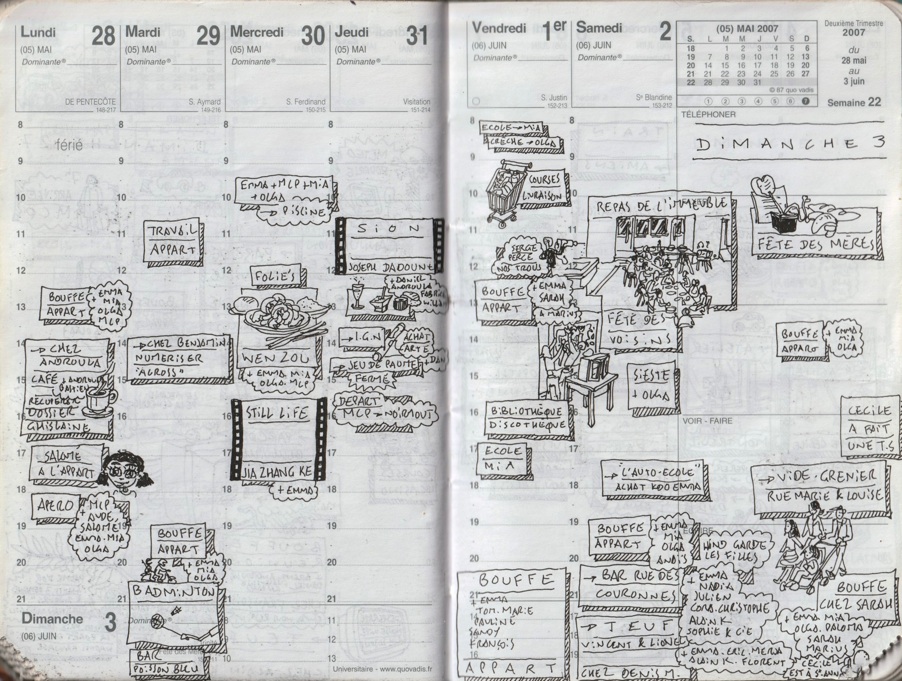 Lundi 28
(05) MAI
Dominante®
DE PENTECÔTE
148-217
férié
BOUFFE
APPART
+ EMMA
MIA
OLGA
MLP
→ CHEZ
ANDROULA
CAFÉ
RECUPERER
DOSSIER
GHISLAINE
SALOMÉ
A L'APPART
APERO
MLP
+ AUDE
SALOMÉ
EMMA. MIA
OLGA
Dimanche 3
(06) JUIN
Mardi 29
(05) MAI
Dominante®
S. Aymard
149-216
TRAVAIL
APPART
→ CHEZ BENJAMIN
NUMERISER
"ACROSS"
BOUFFE
APPART
+ EMMA
MIA
OLGA
BADMINTON
BAR
POISSON BLEU
Mercredi 30
(05) MAI
Dominante®
S. Ferdinand
150-215
EMMA + MLP + MIA
+ OLGA
→ PISCINE
FOLIE'S
WEN ZOU
+ EMMA MIA
OLGA. MLP
STILL LIFE
JIA ZHANG KE
+ EMMA
Jeudi 31
(05) MAI
Dominante®
Visitation
151-214
SION
JOSEPH DADOUNE
+ DANIEL
ANDROULA
→ I.G.N
ACHAT
CARTE
→ JEU DE PAUME
FERMÉ
+ DAN
DEPART
MLP → NOIRMOUT
Universitaire - www.quovadis.fr
Vendredi 1er
(06) JUIN
Dominante®
S. Justin
152-213
ECOLE → MIA
CRECHE → OLGA
COURSES
LIVRAISON
SERGE
PERCE
NOS TROUS
BOUFFE
APPART
+ EMMA
SARAH
& MARIUS
BIBLIOTHEQUE
DISCOTHEQUE
ECOLE
MIA
BOUFFE
+ EMMA
TOM. MARIE
PAULINE
SANDY
FRANÇOIS
APPART
Samedi 2
(06) JUIN
Dominante®
Ste Blandine
153-212
REPAS DE L'IMMEUBLE
FÊTE DES
VOISINS
SIESTE
+ OLGA
→ "L'AUTO-ECOLE"
ACHAT KDO EMMA
BOUFFE
APPART
+ EMMA
MIA
OLGA
ANAÏS
HIND GARDE
LES FILLES
→ BAR RUE DES
COURONNES
+ EMMA
NADIA
JULIEN
CHRISTOPHE
ALAIN K.
SOPHIE & CIE
→ TEUF
VINCENT & LIONEL
+ EMMA. ERIC. MERYA
ALAIN K. FLORENT
CHEZ DENIS M.
(05) MAI 2007
S. L M M J V S D
18 1 2 3 4 5 6
19 7 8 9 10 11 12 13
20 14 15 16 17 18 19 20
21 21 22 23 24 25 26 27
22 28 29 30 31
© 67 quo vadis
1 2 3 4 5 6 7
Deuxième Trimestre
2007
du
28 mai
au
3 juin
Semaine 22
TÉLÉPHONER
DIMANCHE 3
FÊTE DES MÈRES
BOUFFE
APPART
+ EMMA
MIA
OLGA
VOIR - FAIRE
CECILE
A FAIT
UNE T.S
→ VIDE-GRENIER
RUE MARIE & LOUISE
BOUFFE
CHEZ SARAH
+ EMMA MIA
OLGA. PALOMA
SARAH
MARIUS
CECILE
EST À STE ANNE